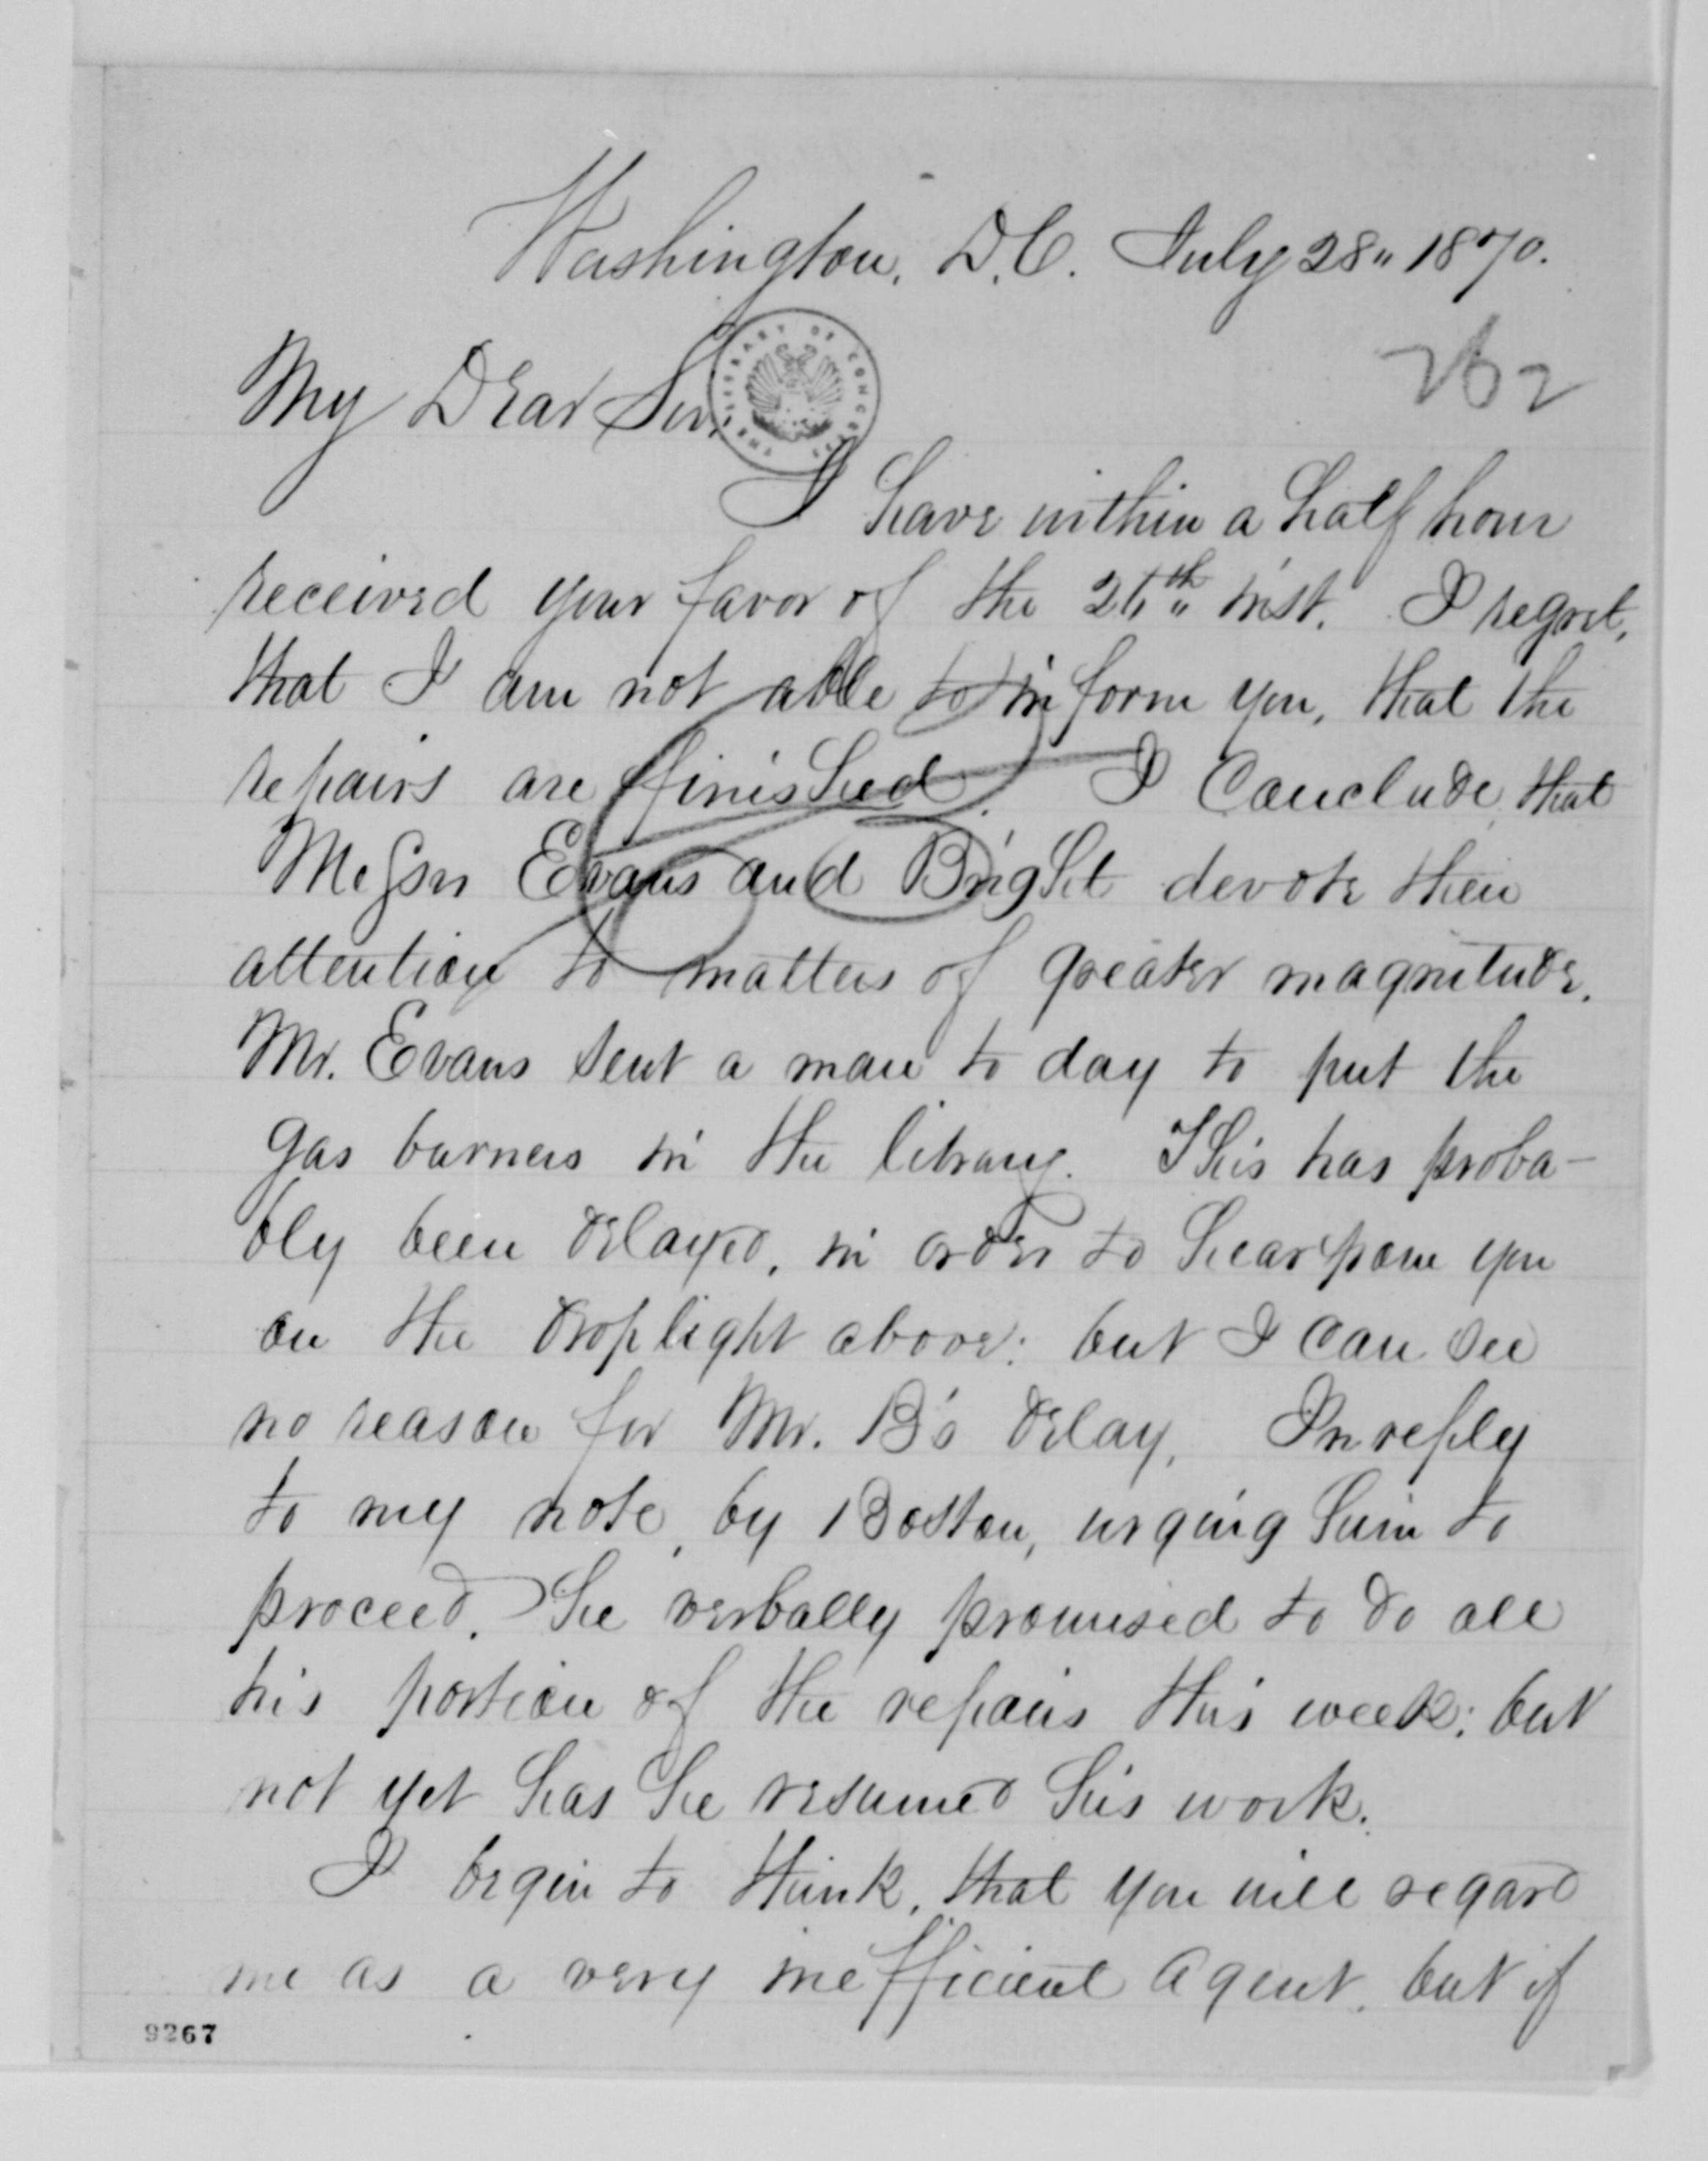 Washington, D.C. July 28" 1870.
262
My Dear Sir,
THE LIBRARY OF CONGRESS
I have within a half hour
received your favor of the 26th" inst. I regret,
that I am not able to inform you, that the
repairs are finished. I conclude, that
Messrs Evans and Bright devote their
attention to matters of greater magnitude.
Mr. Evans sent a man to day to put the
gas burners in the library. This has proba-
bly been delayed, in order to hear from you
on the droplight above: but I can see
no reason for Mr. B's delay. In reply
to my note, by Boston, urging him to
proceed, he verbally promised to do all
his portion of the repairs this week; but
not yet has he resumed his work.
I begin to think, that you will regard
me as a very inefficient agent, but if
9267